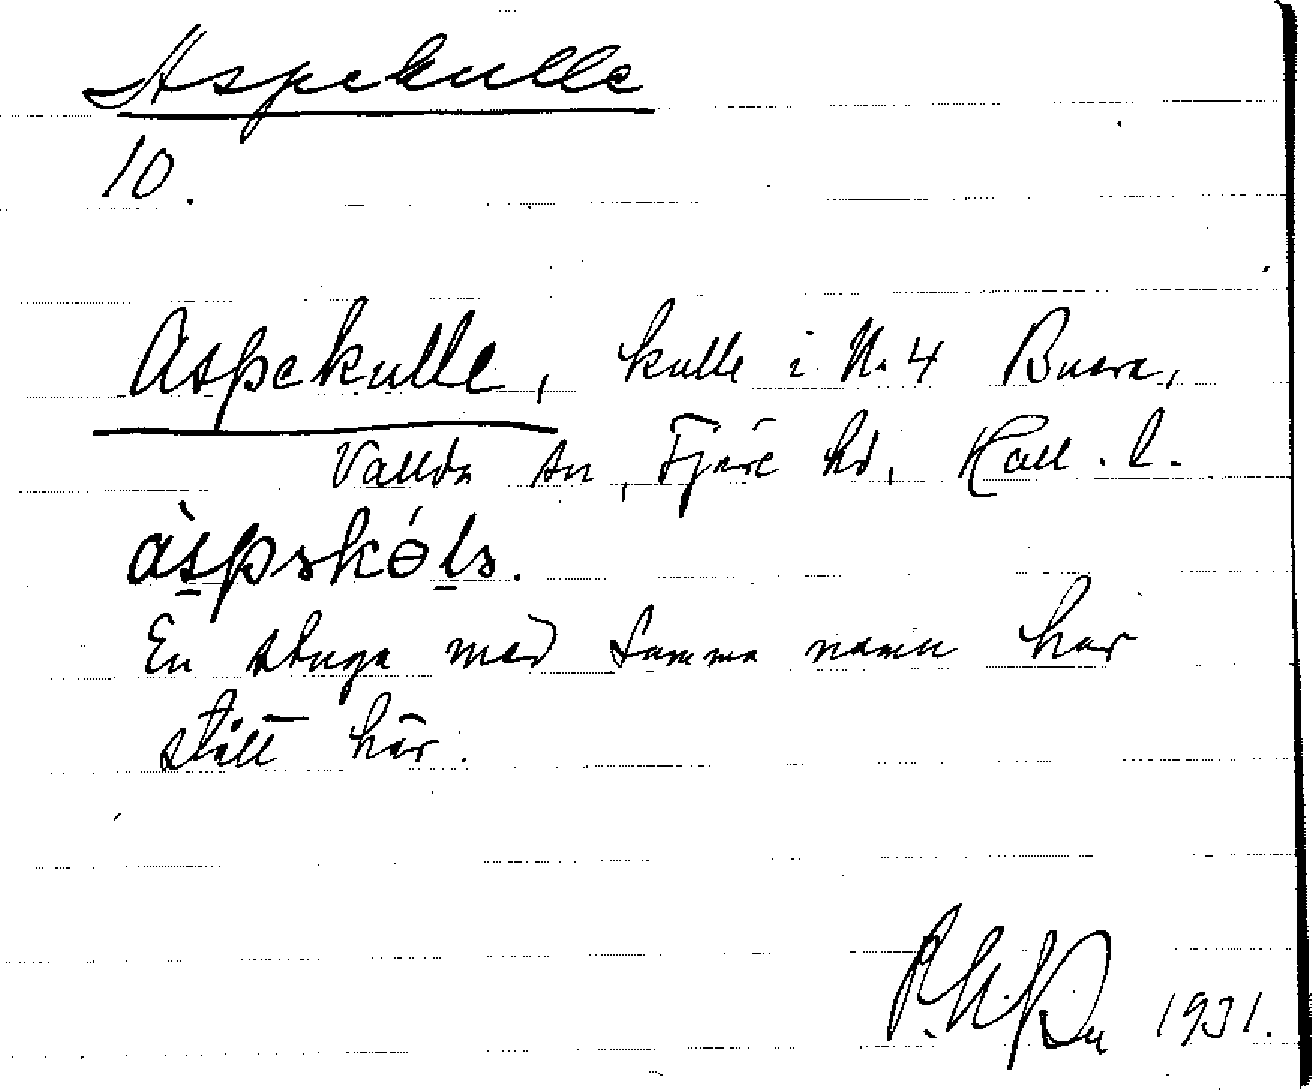 Aspekulle
10.
Aspekulle, kulle i N. 4 Buera,
Vallda sn, Fjäre hd, Hall. l.
àspskóls.
En stuga med samma namn har
stått här.
1931.